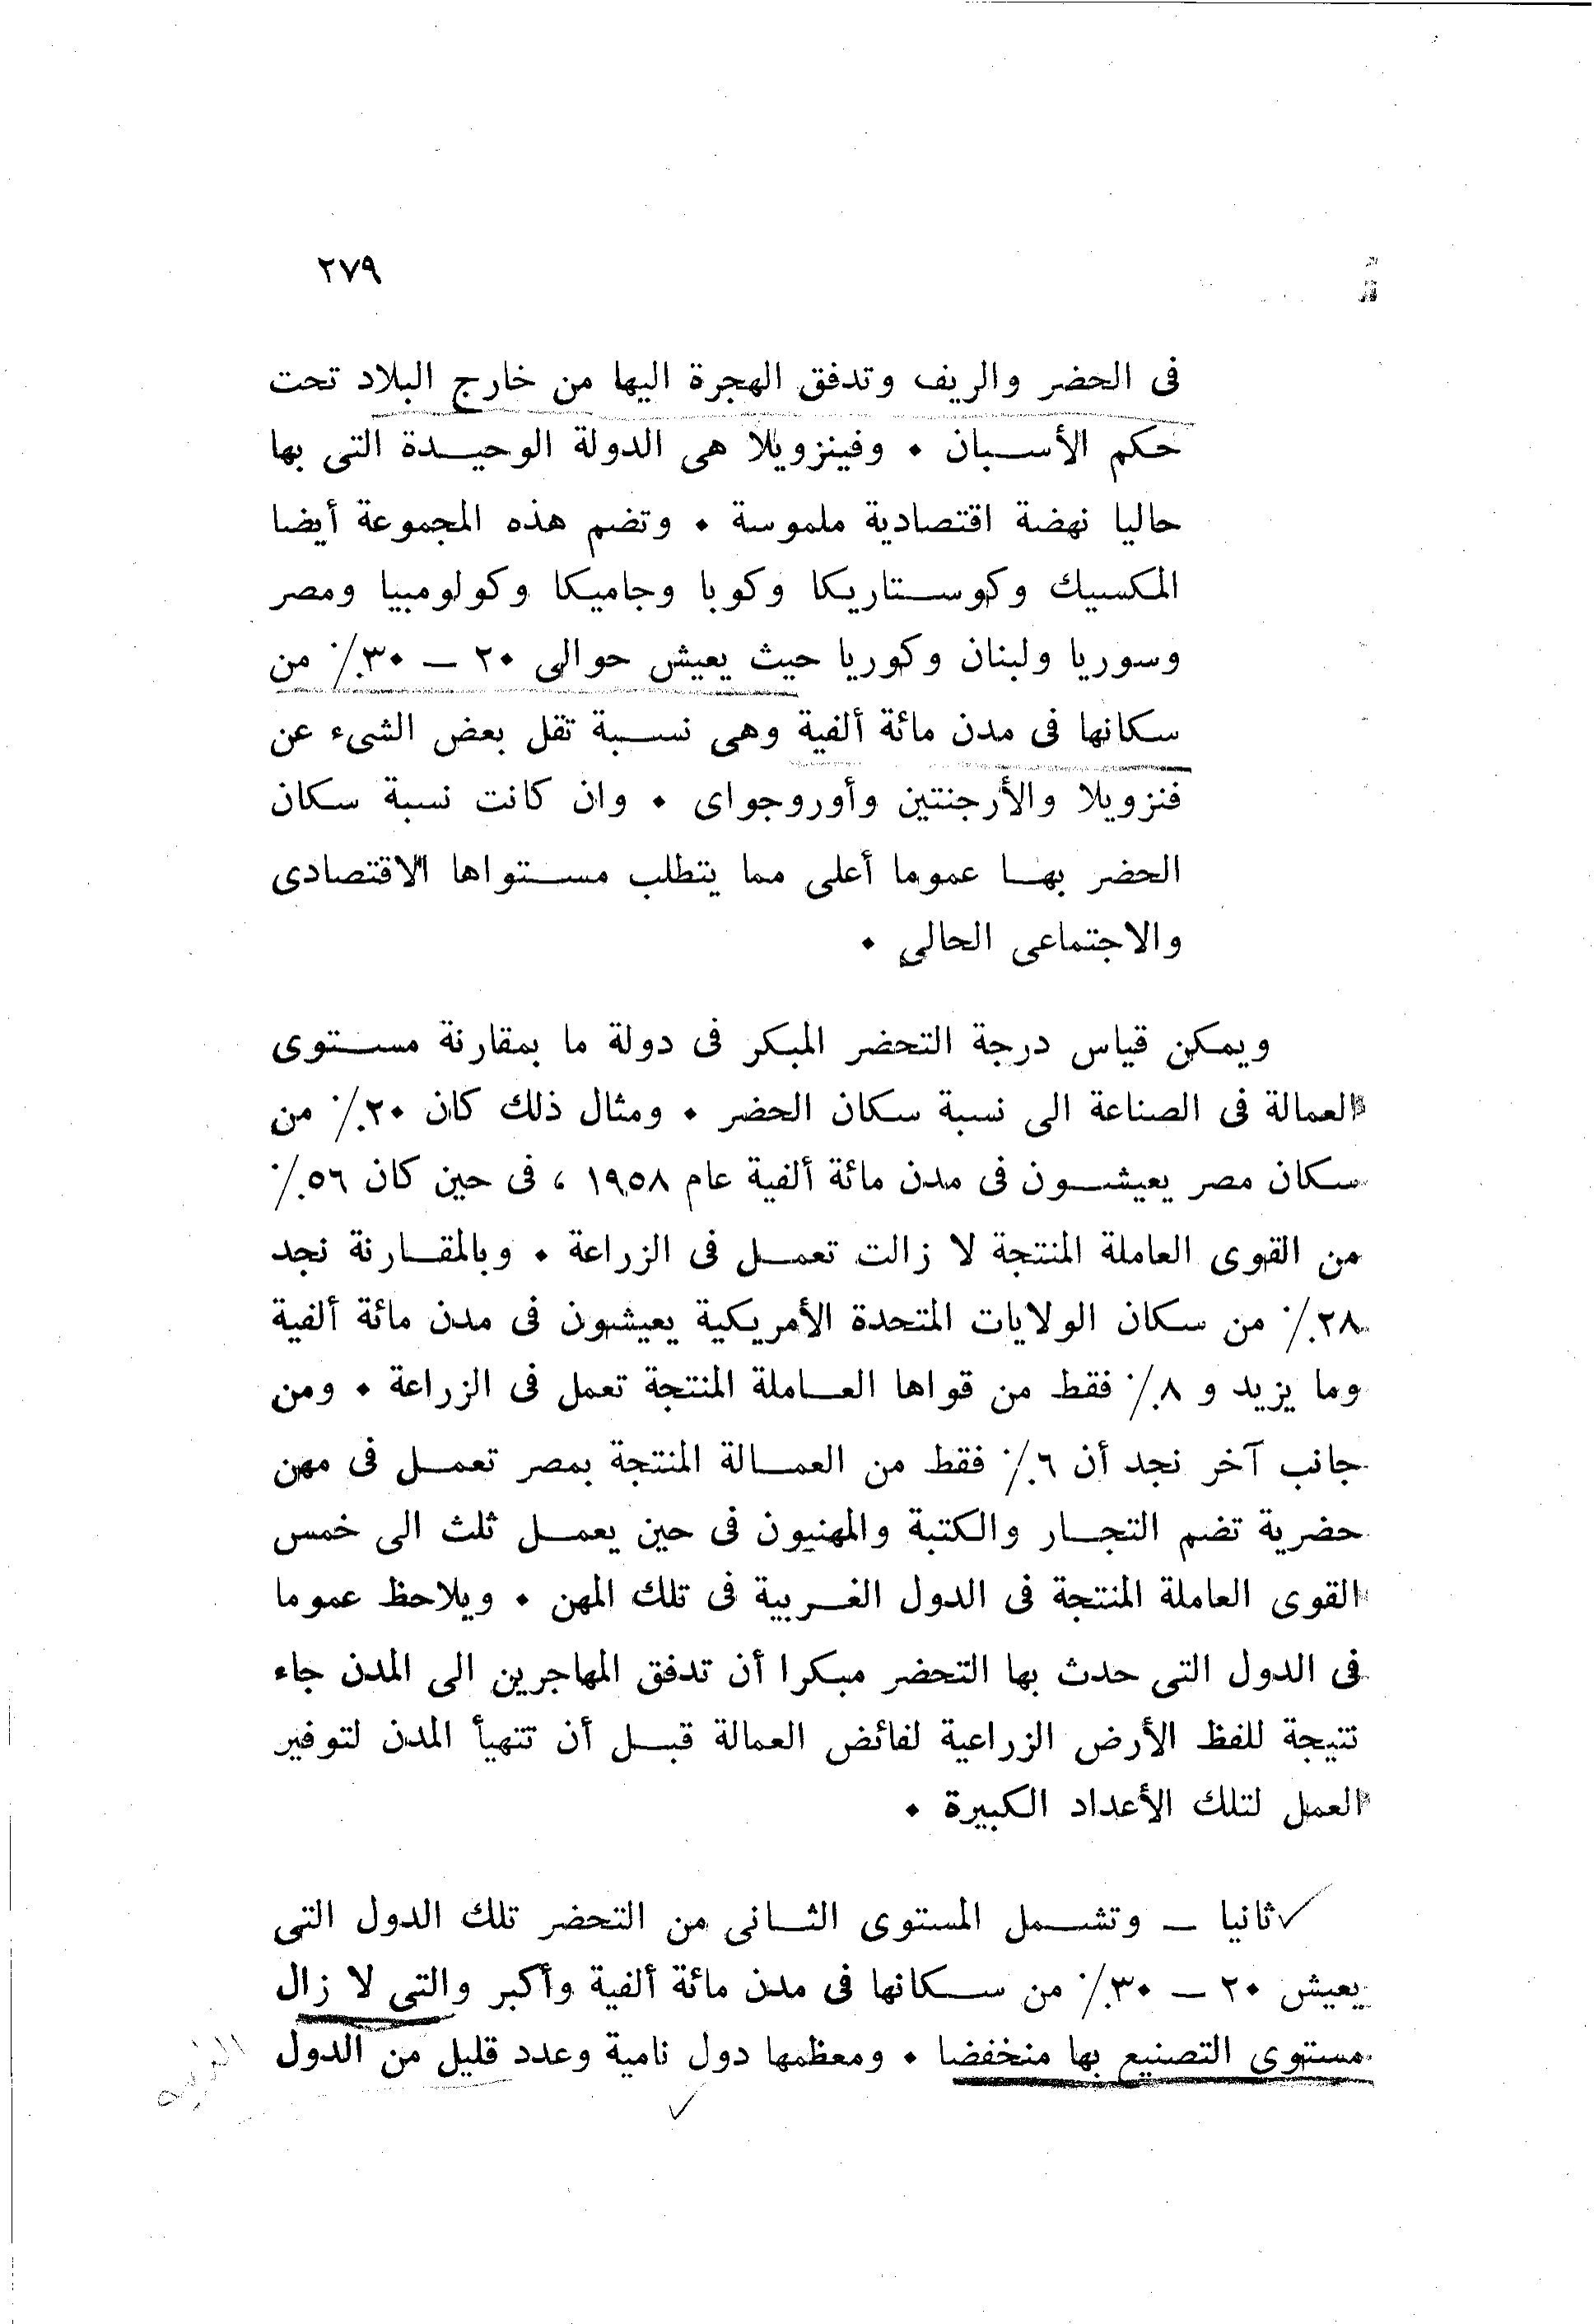 ٢٧٩
فى الحضر والريف وتدفق الهجرة اليها من خارج البلاد تحت
حكم الأسبان ٠ وفينزويلا هى الدولة الوحيدة التى بها
حاليا نهضة اقتصادية ملموسة ٠ وتضم هذه المجموعة أيضا
المكسيك وكوستاريكا وكوبا وجاميكا وكولومبيا ومصر
وسوريا ولبنان وكوريا حيث يعيش حوالى ٢٠ ــ ٣٠٪ من
سكانها فى مدن مائة ألفية وهى نسبة تقل بعض الشىء عن
فنزويلا والأرجنتين وأوروجواى ٠ وان كانت نسبة سكان
الحضر بها عموما أعلى مما يتطلب مستواها الاقتصادى
والاجتماعى الحالى ٠
ويمكن قياس درجة التحضر المبكر فى دولة ما بمقارنة مستوى
العمالة فى الصناعة الى نسبة سكان الحضر ٠ ومثال ذلك كان ٢٠٪ من
سكان مصر يعيشون فى مدن مائة ألفية عام ١٩٥٨ ، فى حين كان ٥٦٪
من القوى العاملة المنتجة لا زالت تعمل فى الزراعة ٠ وبالمقارنة نجد
٢٨٪ من سكان الولايات المتحدة الأمريكية يعيشون فى مدن مائة ألفية
وما يزيد و ٨٪ فقط من قواها العاملة المنتجة تعمل فى الزراعة ٠ ومن
جانب آخر نجد أن ٦٪ فقط من العمالة المنتجة بمصر تعمل فى مهن
حضرية تضم التجار والكتبة والمهنيون فى حين يعمل ثلث الى خمس
القوى العاملة المنتجة فى الدول الغربية فى تلك المهن ٠ ويلاحظ عموما
فى الدول التى حدث بها التحضر مبكرا أن تدفق المهاجرين الى المدن جاء
نتيجة للفظ الأرض الزراعية لفائض العمالة قبل أن تتهيأ المدن لتوفير
العمل لتلك الأعداد الكبيرة ٠
ثانيا ــ وتشمل المستوى الثانى من التحضر تلك الدول التى
يعيش ٢٠ ــ ٣٠٪ من سكانها فى مدن مائة ألفية وأكبر والتى لا زال
مستوى التصنيع بها منخفضا ٠ ومعظمها دول نامية وعدد قليل من الدول